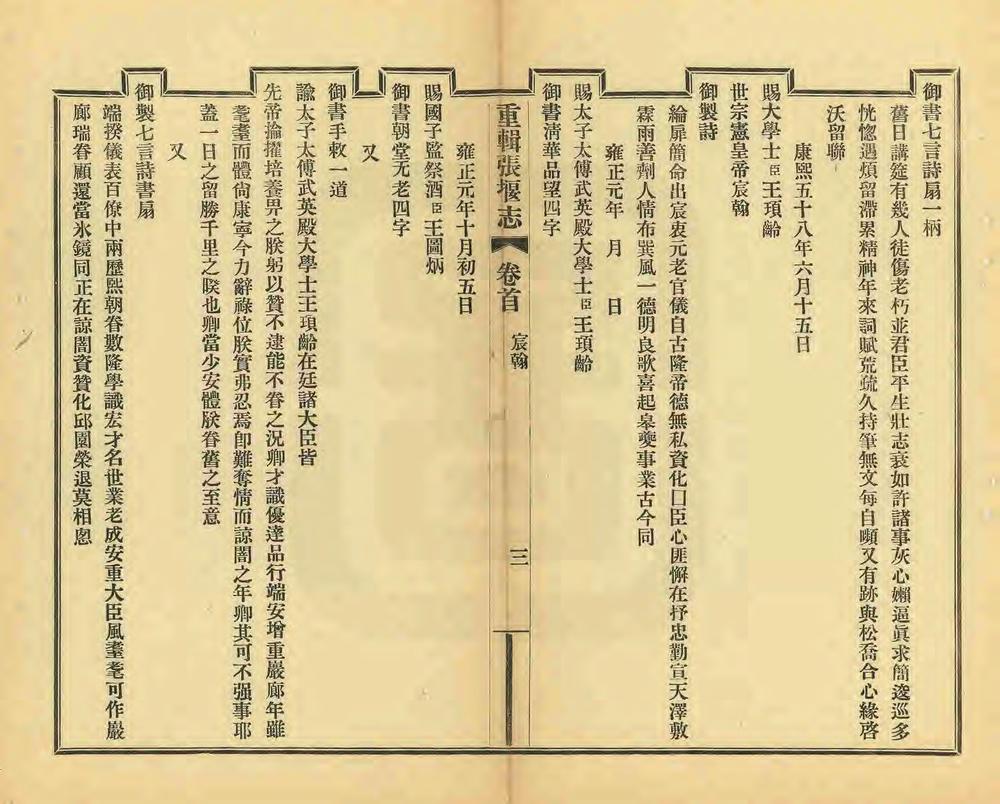 御書七言詩扇一柄
舊日講筵有幾人徒傷老朽並君臣平生壯志衰如許諸事灰心嬾逼眞求簡逡巡多
恍惚遇煩留滯累精神年來詞賦荒疏久持筆無文每自嚬又有跡與松喬合心緣啓
沃留聯
康熙五十八年六月十五日
賜大學士臣王頊齡
世宗憲皇帝宸翰
御製詩
綸扉簡命出宸衷元老官儀自古隆帝德無私資化囗臣心匪懈在抒忠勤宣天澤敷
霖雨善劑人情布巽風一德明良歌喜起皋夔事業古今同
雍正元年　月　日
賜太子太傅武英殿大學士臣王頊齡
御書淸華品望四字
重輯張堰志　卷首　宸翰　三
雍正元年十月初五日
賜國子監祭酒臣王圖炳
御書朝堂无老四字
又
御書手敕一道
諭太子太傅武英殿大學士王頊齡在廷諸大臣皆
先帝掄擢培養畀之朕躬以贊不逮能不眷之況卿才識優達品行端安增重巖廊年雖
耄耋而體尙康寧今力辭祿位朕實弗忍焉卽難奪情而諒闇之年卿其可不强事耶
蓋一日之留勝千里之睽也卿當少安體朕眷舊之至意
又
御製七言詩書扇
端揆儀表百僚中兩歷熙朝眷數隆學識宏才名世業老成安重大臣風耋耄可作巖
廊瑞眷顧還當氷鏡同正在諒闇資贊化邱園榮退莫相悤